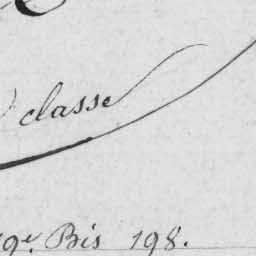 classe
19e. Bis 198.